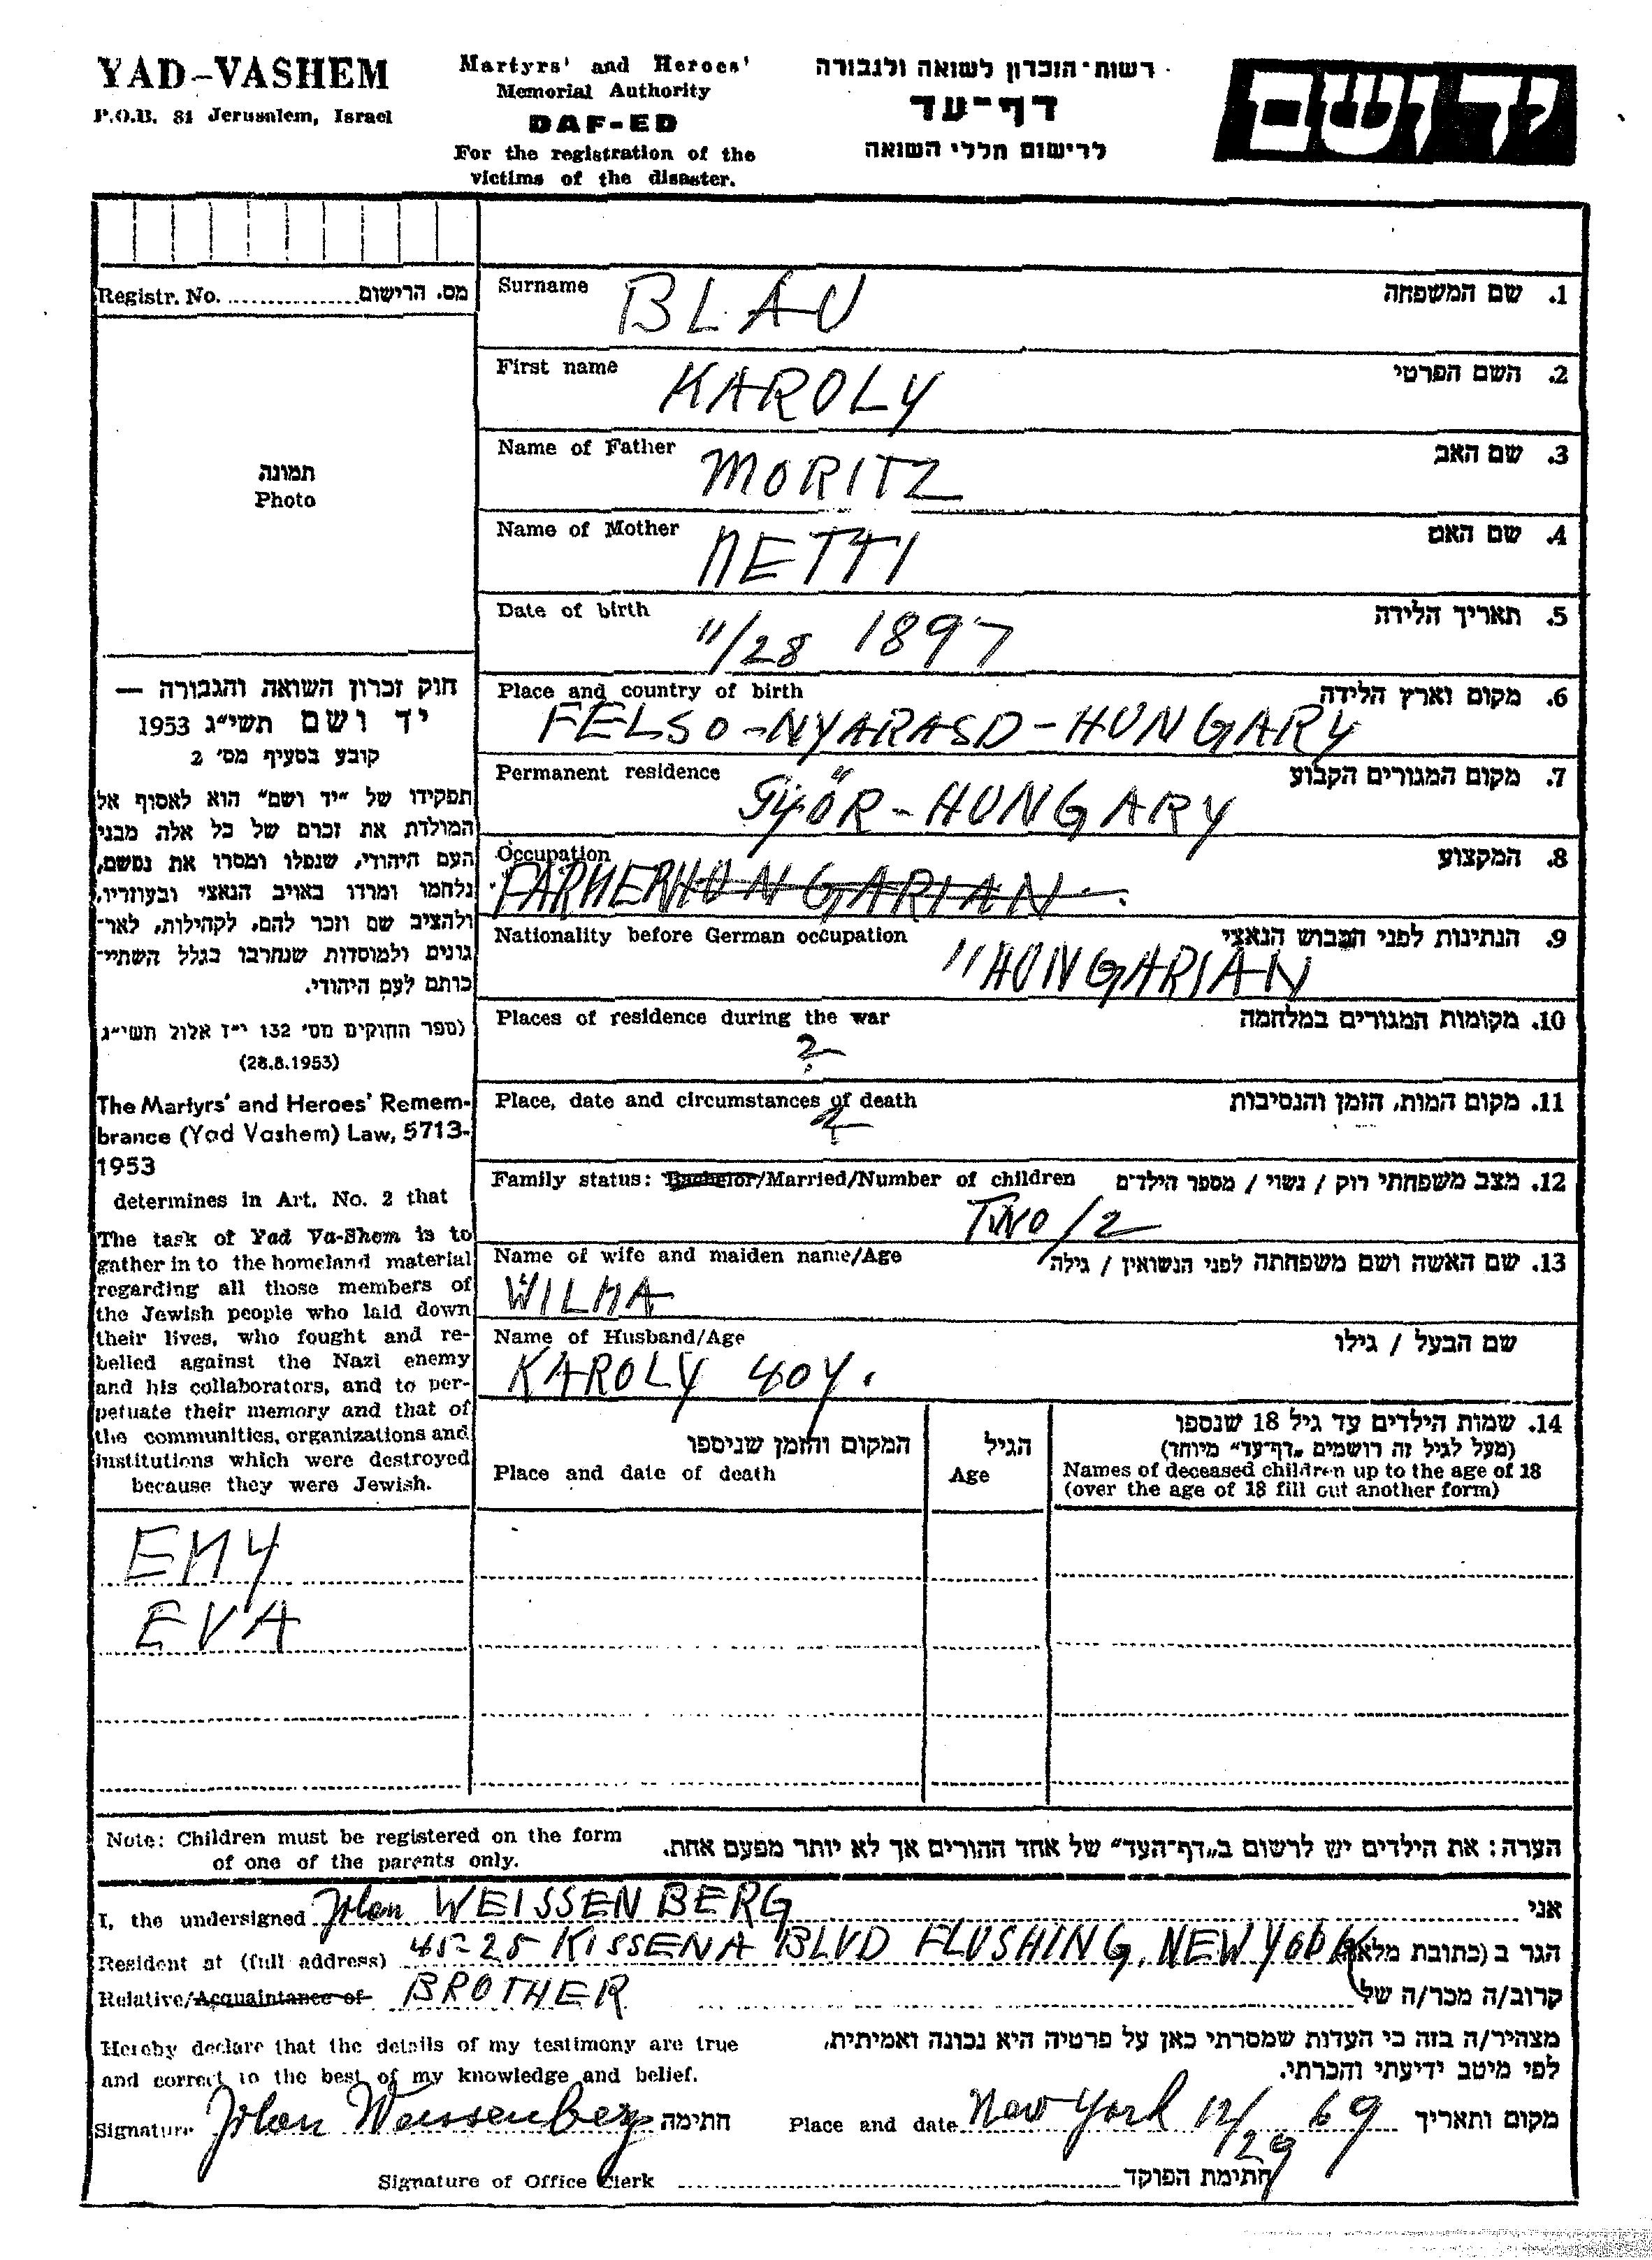 YAD-VASHEM
P.O.B. 84 Jerusalem, Israel
Martyrs' and Heroes'
Memorial Authority
DAF-ED
For the registration of the
victims of the disaster.
רשות־הזכרון לשואה ולגבורה
דף־עד
לרישום חללי השואה
יד ושם
Registr. No. מס. הרישום
Surname BLAU 1. שם המשפחה
First name KAROLY 2. השם הפרטי
Name of Father MORITZ 3. שם האב
תמונה
Photo
Name of Mother NETTI 4. שם האם
Date of birth 11/28 1897 5. תאריך הלידה
Place and country of birth 6. מקום וארץ הלידה
FELSO-NYARASD-HUNGARY
Permanent residence 7. מקום המגורים הקבוע
GYŐR-HUNGARY
Occupation 8. המקצוע
FARMER HUNGARIAN
Nationality before German occupation 9. הנתינות לפני הכבוש הנאצי
" HUNGARIAN
Places of residence during the war 10. מקומות המגורים במלחמה
?
Place, date and circumstances of death 11. מקום המות, הזמן והנסיבות
?
Family status: Bachelor/Married/Number of children 12. מצב משפחתי רוק / נשוי / מספר הילדים
TWO/2
Name of wife and maiden name/Age 13. שם האשה ושם משפחתה לפני הנשואין / גילה
WILMA
Name of Husband/Age שם הבעל / גילו
KAROLY 40 Y.
חוק זכרון השואה והגבורה —
יד ושם תשי״ג 1953
קובע בסעיף מס' 2
תפקידו של ״יד ושם״ הוא לאסוף אל
המולדת את זכרם של כל אלה מבני
העם היהודי, שנפלו ומסרו את נפשם,
נלחמו ומרדו באויב הנאצי ובעוזריו,
ולהציב שם וזכר להם, לקהילות, לאר־
גונים ולמוסדות שנחרבו בגלל השתיי־
כותם לעם היהודי.
(ספר החוקים מס' 132 י״ז אלול תשי״ג
(28.8.1953)
The Martyrs' and Heroes' Remem-
brance (Yad Vashem) Law, 5713-
1953
determines in Art. No. 2 that
The task of Yad Va-Shem is to
gather in to the homeland material
regarding all those members of
the Jewish people who laid down
their lives, who fought and re-
belled against the Nazi enemy
and his collaborators, and to per-
petuate their memory and that of
the communities, organizations and
institutions which were destroyed
because they were Jewish.
המקום והזמן שניספו
Place and date of death
הגיל
Age
14. שמות הילדים עד גיל 18 שנספו
(מעל לגיל זה רושמים ״דף־עד״ מיוחד)
Names of deceased children up to the age of 18
(over the age of 18 fill out another form)
EMY
EVA
Note: Children must be registered on the form
of one of the parents only.
הערה: את הילדים יש לרשום ב״דף־העד״ של אחד ההורים אך לא יותר מפעם אחת.
I, the undersigned Jolan WEISSENBERG אני
Resident at (full address) 45-25 KISSENA BLVD FLUSHING, NEW YORK הגר ב (כתובת מלאה)
Relative/Acquaintance of BROTHER קרוב/ה מכר/ה של
Hereby declare that the details of my testimony are true
and correct to the best of my knowledge and belief.
מצהיר/ה בזה כי העדות שמסרתי כאן על פרטיה היא נכונה ואמיתית,
לפי מיטב ידיעתי והכרתי.
Signature Jolan Weissenberg חתימה Place and date New York 12/29 69 מקום ותאריך
Signature of Office Clerk חתימת הפוקד